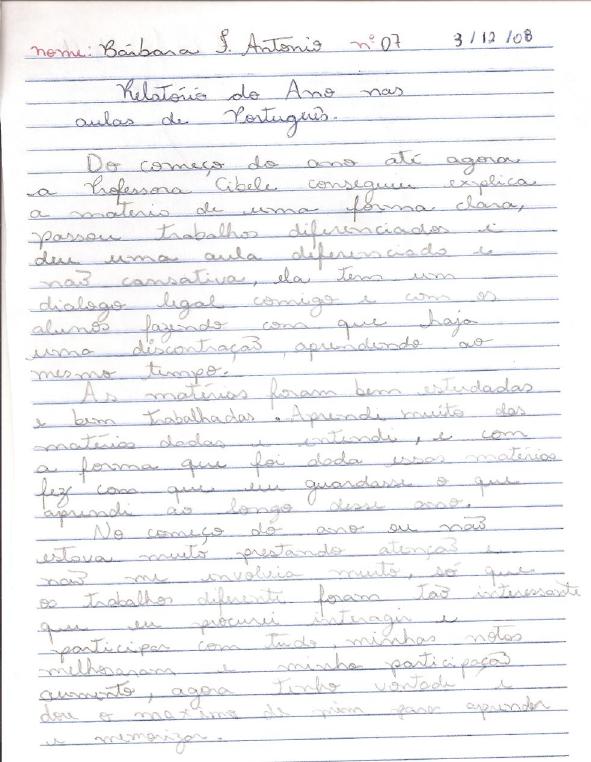 nome: Bárbara S. Antonio nº 07 3/12/08
Relatório do Ano nas
aulas de Português.
Do começo do ano até agora
a Professora Cibele conseguiu explica
a materia de uma forma clara,
passou trabalhos diferenciados e
deu uma aula diferenciado e
não cansativa, ela tem um
dialogo legal comigo e com os
alunos fazendo com que haja
uma discontração, aprendendo ao
mesmo tempo.
As matérias foram bem estudadas
e bem trabalhadas. Aprendi muito das
matérias dadas e entendi, e com
a forma que foi dada essas matérias
fez com que eu guardasse o que
aprendi ao longo desse ano.
No começo do ano eu não
estava muito prestando atenção e
não me envolvia muito, só que
os trabalhos diferente foram tão interessante
que eu procurei interagir e
participar com tudo, minhas notas
melhoraram e minha participação
aumento, agora tenho vontade e
dou o maximo de mim para aprender
e memorizar.